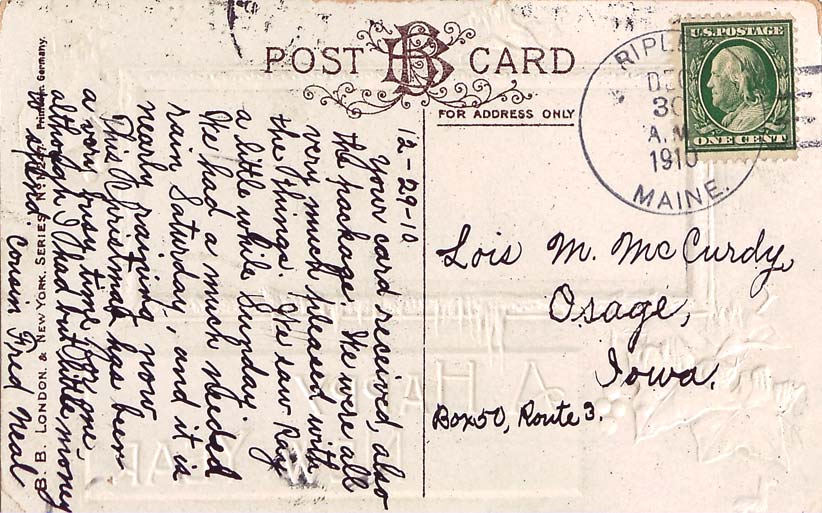 POST CARD
BB
FOR ADDRESS ONLY
U.S. POSTAGE
ONE CENT
DEC
30
A.M.
1910
MAINE.
12-29-10
Your card received, also
the package. We were all
very much pleased with
the things. We saw Ray
a little while Sunday.
We had a much needed
rain Saturday, and it is
nearly raining now.
This Christmas has been
a very busy time for me,
although I had but little money
to spend. Cousin Fred Neal
Lois M. McCurdy,
Osage,
Iowa.
Box 50, Route 3.
B. B. LONDON. & NEW YORK. SERIES No. Printed in Germany.
A HAPPY
NEW YEAR